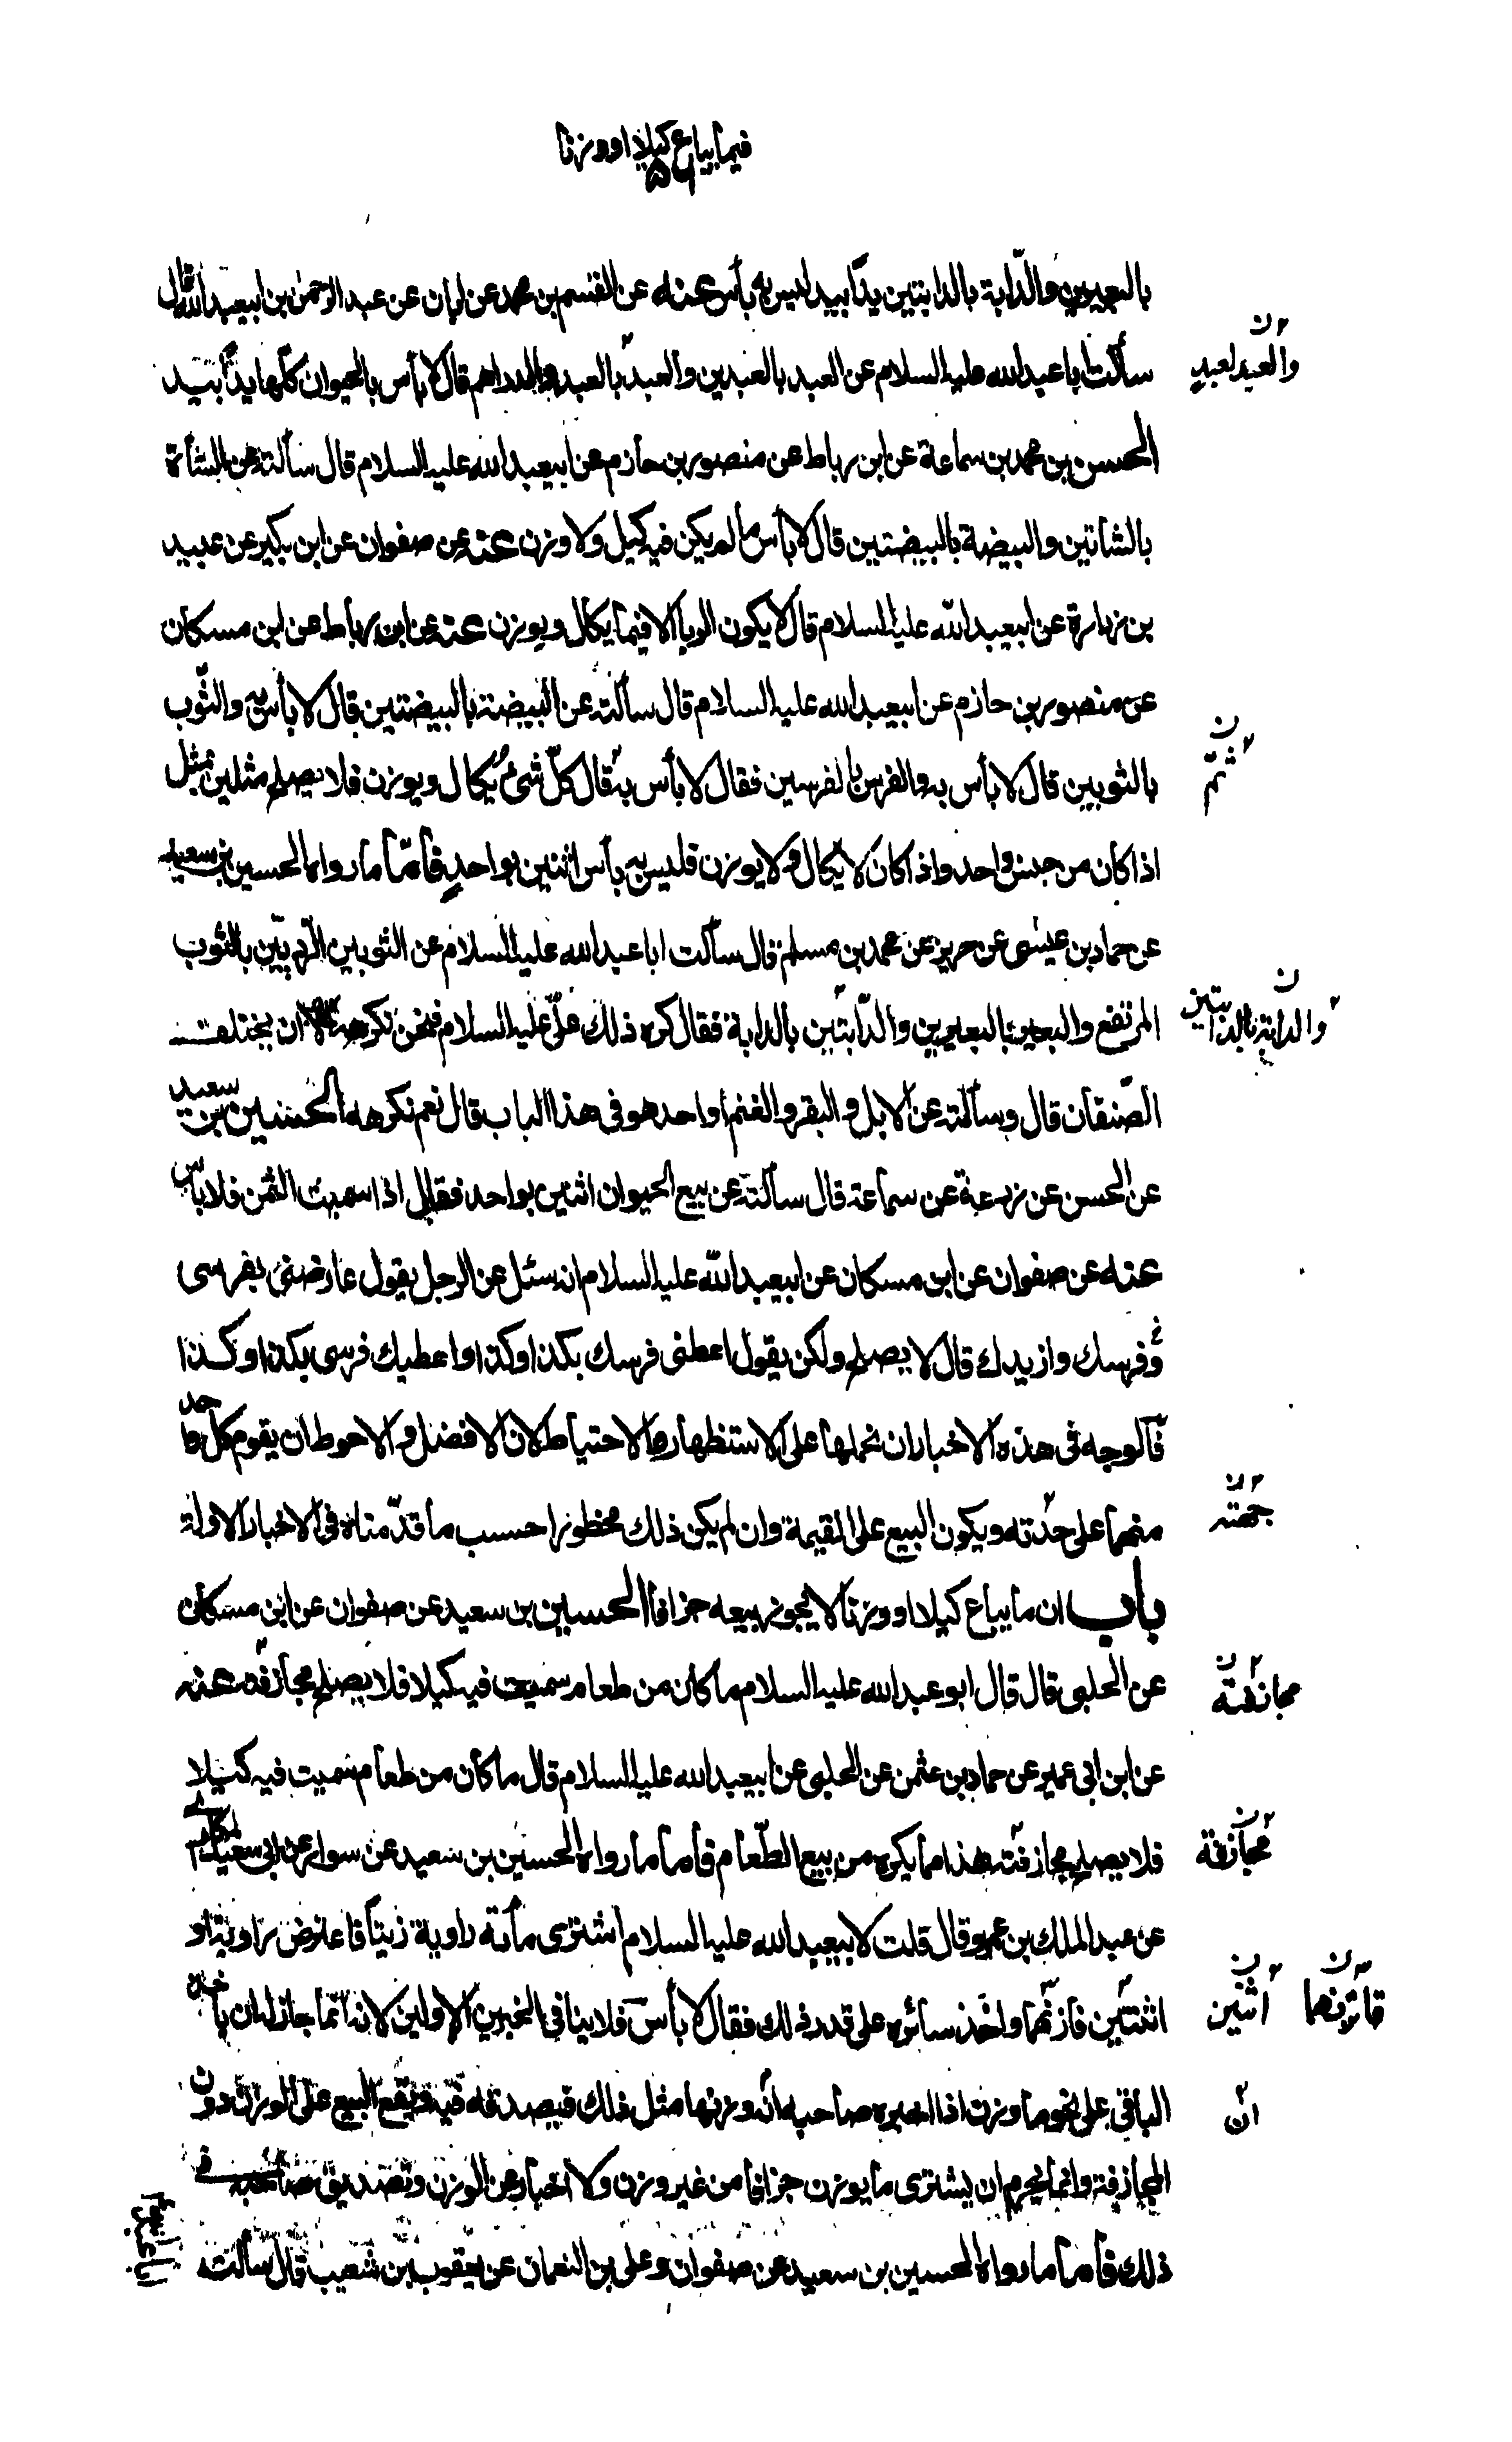 فيما يباع كيلا او وزنا
٥٦
بالبعيرين والدّابة بالدابتين يدًا بيد ليس به بأس عنه عن القسم بن محمد عن ابان عن عبد الرحمن بن ابيعبد الله قال
سألت ابا عبد الله عليه السلام عن العبد بالعبدين والعبد بالعبد والدراهم قال لا بأس بالحيوان كلها يدًا بيد
والعبد لعبد ن
الحسن بن محمد بن سماعة عن ابن رباط عن منصور بن حازم عن ابيعبد الله عليه السلام قال سألته عن الشاة
بالشاتين والبيضة بالبيضتين قال لا بأس ما لم يكن فيه كيل ولا وزن عنه عن صفوان عن ابن بكير عن عبيد
بن زرارة عن ابيعبد الله عليه السلام قال لا يكون الربا الا فيما يكال ويوزن عنه عن ابن رباط عن ابن مسكان
عن منصور بن حازم عن ابيعبد الله عليه السلام قال سألته عن البيضة بالبيضتين قال لا بأس به والثّوب
بالثوبين قال لا بأس به والفرس بالفرسين فقال لا بأس به قال كلّ شئ يكال ويوزن فلا يصلح مثلين بمثل
ثمّ ن
اذا كان من جنس واحد واذا كان لا يكال ولا يوزن فليس به بأس اثنين بواحدٍ فأمّا ما رواه الحسين بن سعيد
عن حماد بن عيسى عن حريز عن محمد بن مسلم قال سألت ابا عبد الله عليه السلام عن الثوبين الرّديّين بالثوب
المرتفع والبعير بالبعيرين والدّابتين بالدابة فقال كره ذلك علىّ عليه السلام فنحن نكرهه الا ان يختلف
والدابة بالدابتين ن
الصّنفان قال وسألته عن الابل والبقر والغنم او احد هو فى هذا الباب قال نعم نكرهه الحسين بن سعيد
عن الحسن عن زرعة عن سماعة قال سألته عن بيع الحيوان اثنين بواحد فقال اذا سميت الثمن فلا بأس
عنه عن صفوان عن ابن مسكان عن ابيعبد الله عليه السلام انه سئل عن الرجل يقول عارضنى بفرسى
وفرسك وازيدك قال لا يصلح ولكن يقول اعطنى فرسك بكذا وكذا واعطيك فرسى بكذا وكذا
فالوجه فى هذه الاخبار ان نحملها على الاستظهار والاحتياط لان الافضل والاحوط ان يقوم كل واحد
منهما على حدّته ويكون البيع على القيمة وان لم يكن ذلك محظورا حسب ما قدّمناه فى الاخبار الاولة
جهته ن
باب ان ما يباع كيلا او وزنا لا يجوز بيعه جزافا الحسين بن سعيد عن صفوان عن ابن مسكان
عن الحلبى قال قال ابو عبد الله عليه السلام ما كان من طعام سميت فيه كيلا فلا يصلح مجازفة عنه
مجازفته ن
عن ابن ابى عمير عن حماد بن عثمن عن الحلبى عن ابيعبد الله عليه السلام قال ما كان من طعام سميت فيه كيلا
فلا يصلح مجازفته هذا مما يكره من بيع الطّعام فأما ما رواه الحسين بن سعيد عن سوار عن ابى سعيد المكارى
مجازفة ن
عن عبد الملك بن عمرو قال قلت لابيعبد الله عليه السلام اشترى مأة راوية زيتا فاعترض راوية او
اثنتين فازنهما واخذ سائره على قدر ذلك فقال لا بأس فلا ينافى الخبرين الاولين لانه انما جاز له ان يأخذ
اثنين ن فأتزنهما ن
الباقى على نحو ما وزن اذا اخبره صاحبه انه وزنها مثل ذلك فيصدقه فيه ويقع البيع على الوزن دون
ان
المجازفة وانما يحرم ان يشترى ما يوزن جزافا من غير وزن ولا اخبار عن الوزن وتصديق صاحبه فى
ذلك فأما ما رواه الحسين بن سعيد عن صفوان وعلى بن النعمان عن يعقوب بن شعيب قال سألته